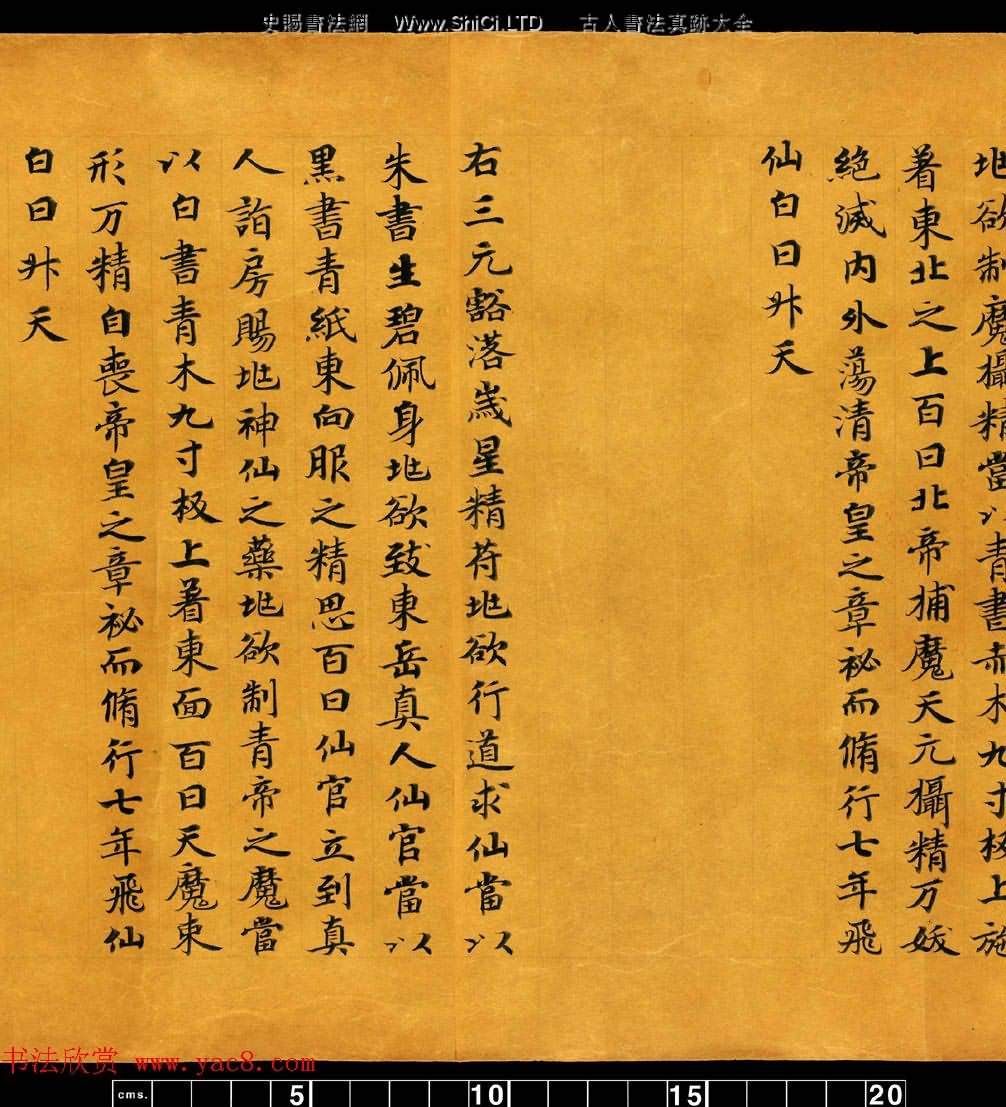 史賜書法網 Www.ShiCi.LTD 古人書法真跡大全
地欲制魔攝精當以青書赤木九寸板上施
著東北之上百日北帝捕魔天元攝精万妖
絕滅內外蕩清帝皇之章祕而脩行七年飛
仙白日升天
右三元豁落歲星精苻地欲行道求仙當以
朱書生碧佩身地欲致東岳真人仙官當以
黑書青紙東向服之精思百日仙官立到真
人詣房賜地神仙之藥地欲制青帝之魔當
以白書青木九寸板上著東面百日天魔束
形万精自喪帝皇之章祕而脩行七年飛仙
白日升天
书法欣赏 www.yac8.com
cms. 5 10 15 20